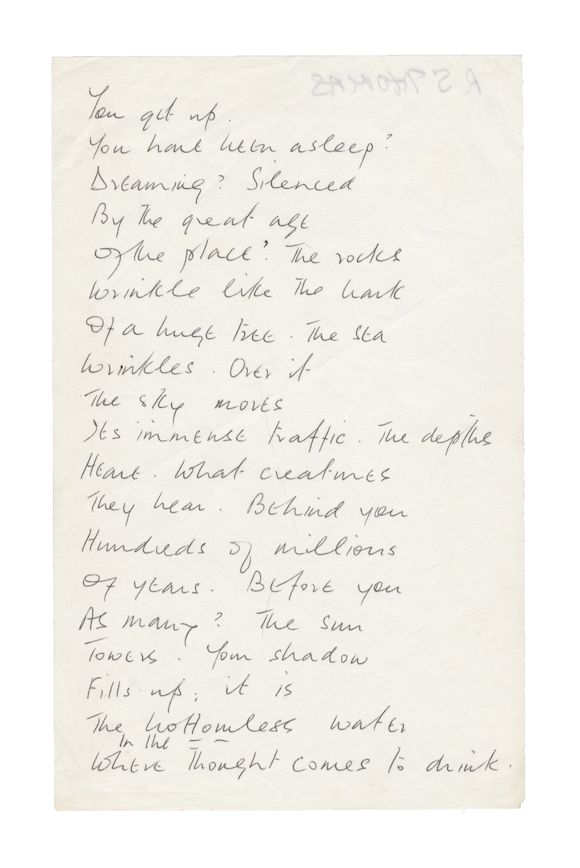 R S THOMAS
You get up.
You have been asleep?
Dreaming? Silenced
By the great age
Of the place? The rocks
Wrinkle like the bark
Of a huge tree. The sea
Wrinkles. Over it
The sky moves
Its immense traffic. The depths
Heave. What creatures
They bear. Behind you
Hundreds of millions
Of years. Before you
As many? The sun
Towers. Your shadow
Fills up; it is
The bottomless water
In the
Where Thought comes to drink.